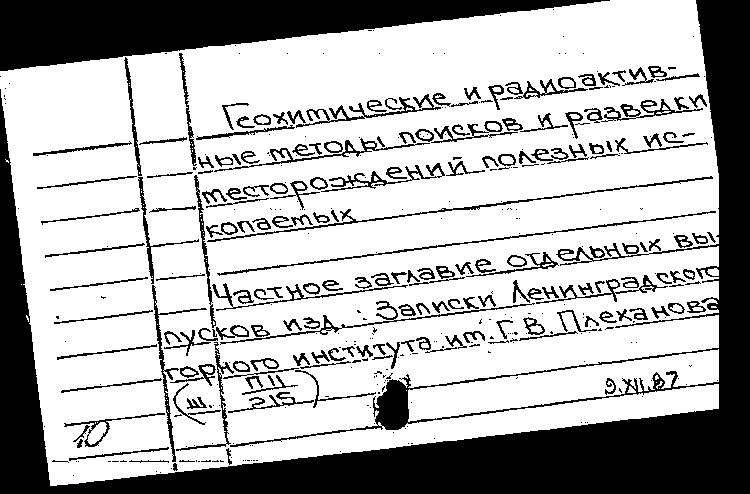 Геохимические и радиоактив-
ные методы поисков и разведки
месторождений полезных ис-
копаемых
Частное заглавие отдельных вы-
пусков изд.: Записки Ленинградского
горного института им. Г.В. Плеханова
(Ш. П11/Э15)
9.XII.87
10